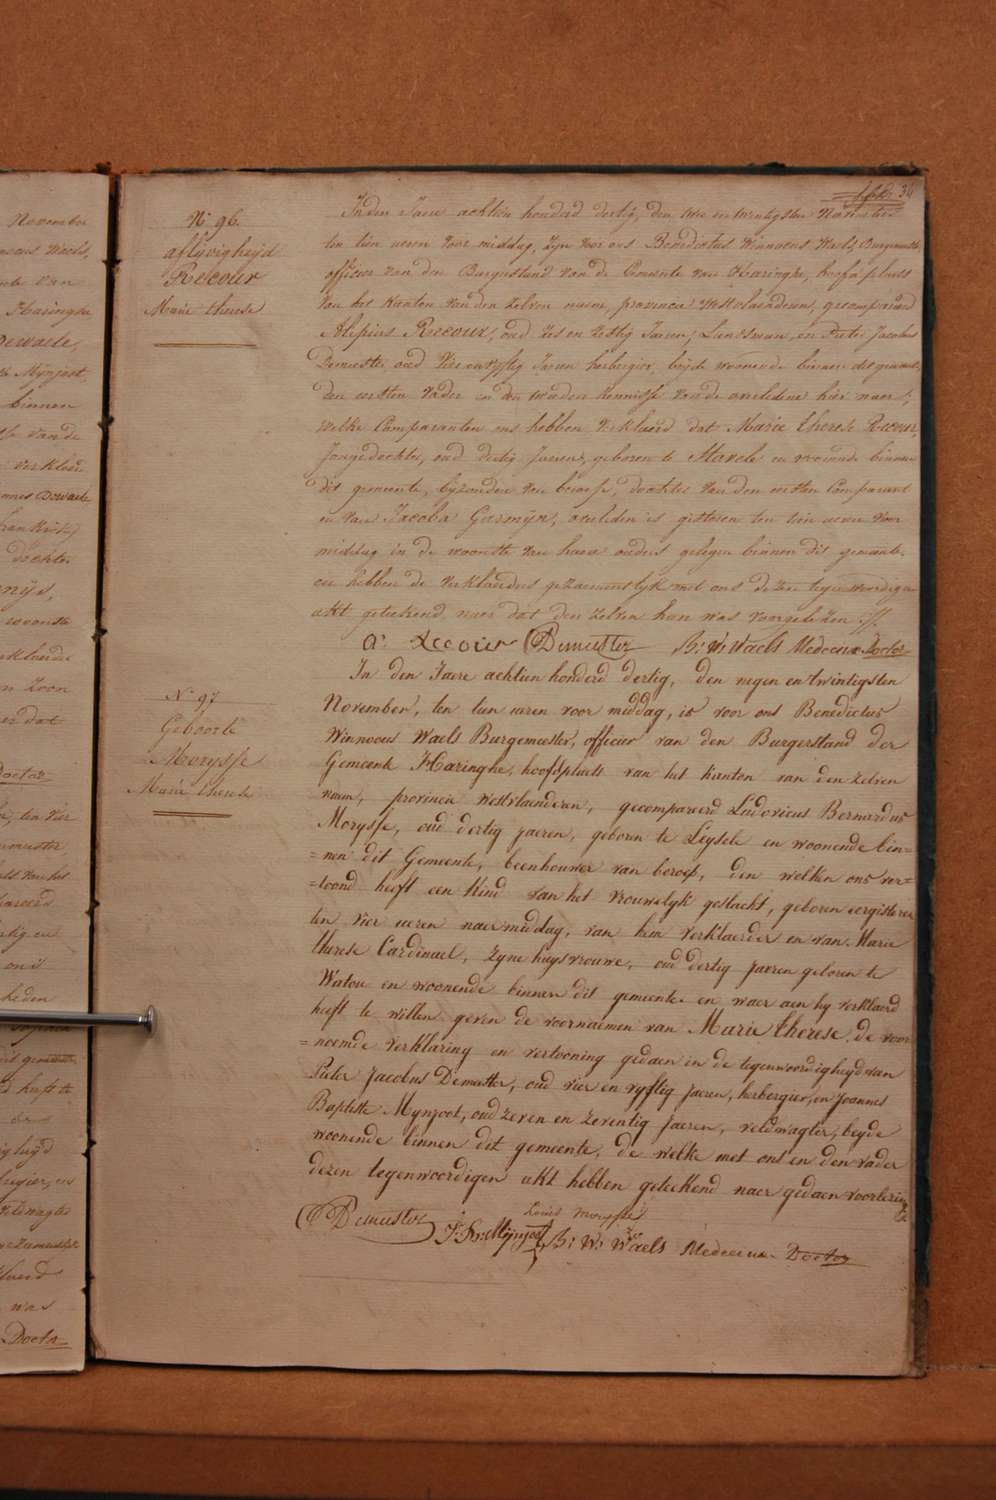 November
Waels,
van
Haringhe
Dewaele,
Mynjoot,
binnen
van de
verklaer
Dewaele,
dochter
woonste
Zoon
dat
Doctor
ten vier
heden
heeft te
was
Doctor
36
N° 96.
aflijvigheijd
Recour
Marie therese
In den Jaere achtien honderd dertig, den twee en twintigsten November
ten tien ueren voor middag, zijn voor ons Benedictus Winnocus Waels, Burgemeester
officier van den Burgerstand van de Gemeente van Haringhe, hoofdplaets
van het Kanton van den zelven naem, provincie Westvlaenderen, gecompareerd
Alepius Recour, oud zes en zestig Jaeren, Landsman, en Pieter Jacobus
Demeester, oud vier en vyftig Jaeren herbergier, beyde woonende binnen dit gemeente,
den eersten vader en den tweeden kennisse van de overledene hier naer;
welke Comparanten ons hebben verklaerd dat Marie Therese Recour,
Jongedochter, oud dertig Jaeren, geboren te Stavele en woonende binnen
dit gemeente, byzondere van beroep, dochter van den eersten Comparant
en van Jacoba Germyn, overleden is gisteren ten tien ueren voor
middag in de woonste van haere ouders gelegen binnen dit gemeente.
en hebben de verklaerders gezaementlyk met ons dezen tegenwoordigen
akt geteekend naer dat den zelven hun was voorgelezen ./.
A: Recour Demeester B: W: Waels Medecinæ Doctor
N° 97
Geboorte
Morysse
Marie therese
In den Jaere achtien honderd dertig, den negen en twintigsten
November, ten tien ueren voor middag, is voor ons Benedictus
Winnocus Waels Burgemeester, officier van den Burgerstand der
Gemeente Haringhe, hoofdplaets van het kanton van den zelven
naem, provincie westvlaenderen, gecompareerd Ludovicus Bernardus
Morysse, oud dertig jaeren, geboren te Leysele en woonende bin=
=nen dit Gemeente, beenhouwer van beroep, den welken ons ver=
=toond heeft een kind van het vrouwelyk geslacht, geboren eergisteren
ten vier ueren naer middag, van hem verklaerder en van Marie
therese Cardinael, zyne huysvrouwe, oud dertig jaeren geboren te
Watou en woonende binnen dit gemeente en waer aen hy verklaerd
heeft te willen geven de voornaemen van Marie therese, de voor=
=noemde verklaring en vertooning gedaen in de tegenwoordigheyd van
Pieter Jacobus Demeester, oud vier en vyftig jaeren, herbergier, en Joannes
Baptiste Mynjoot, oud zeven en zeventig jaeren, veldwagter, beyde
woonende binnen dit gemeente, de welke met ons en den vader
dezen tegenwoordigen akt hebben geteekend naer gedaen voorlezing
Louis morysse
Demeester J: B: Mynjoot B: W: Waels Medecinæ Doctor